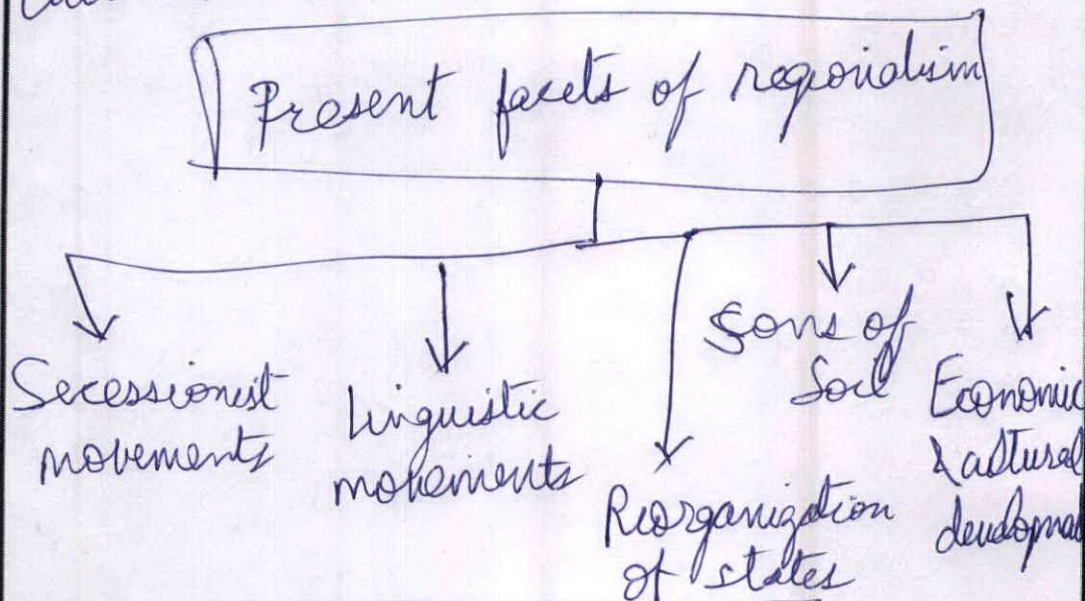 Present facets of regionalism
Secessionist
movements
Linguistic
movements
Reorganization
of states
Sons of
Soil
Economic
& cultural